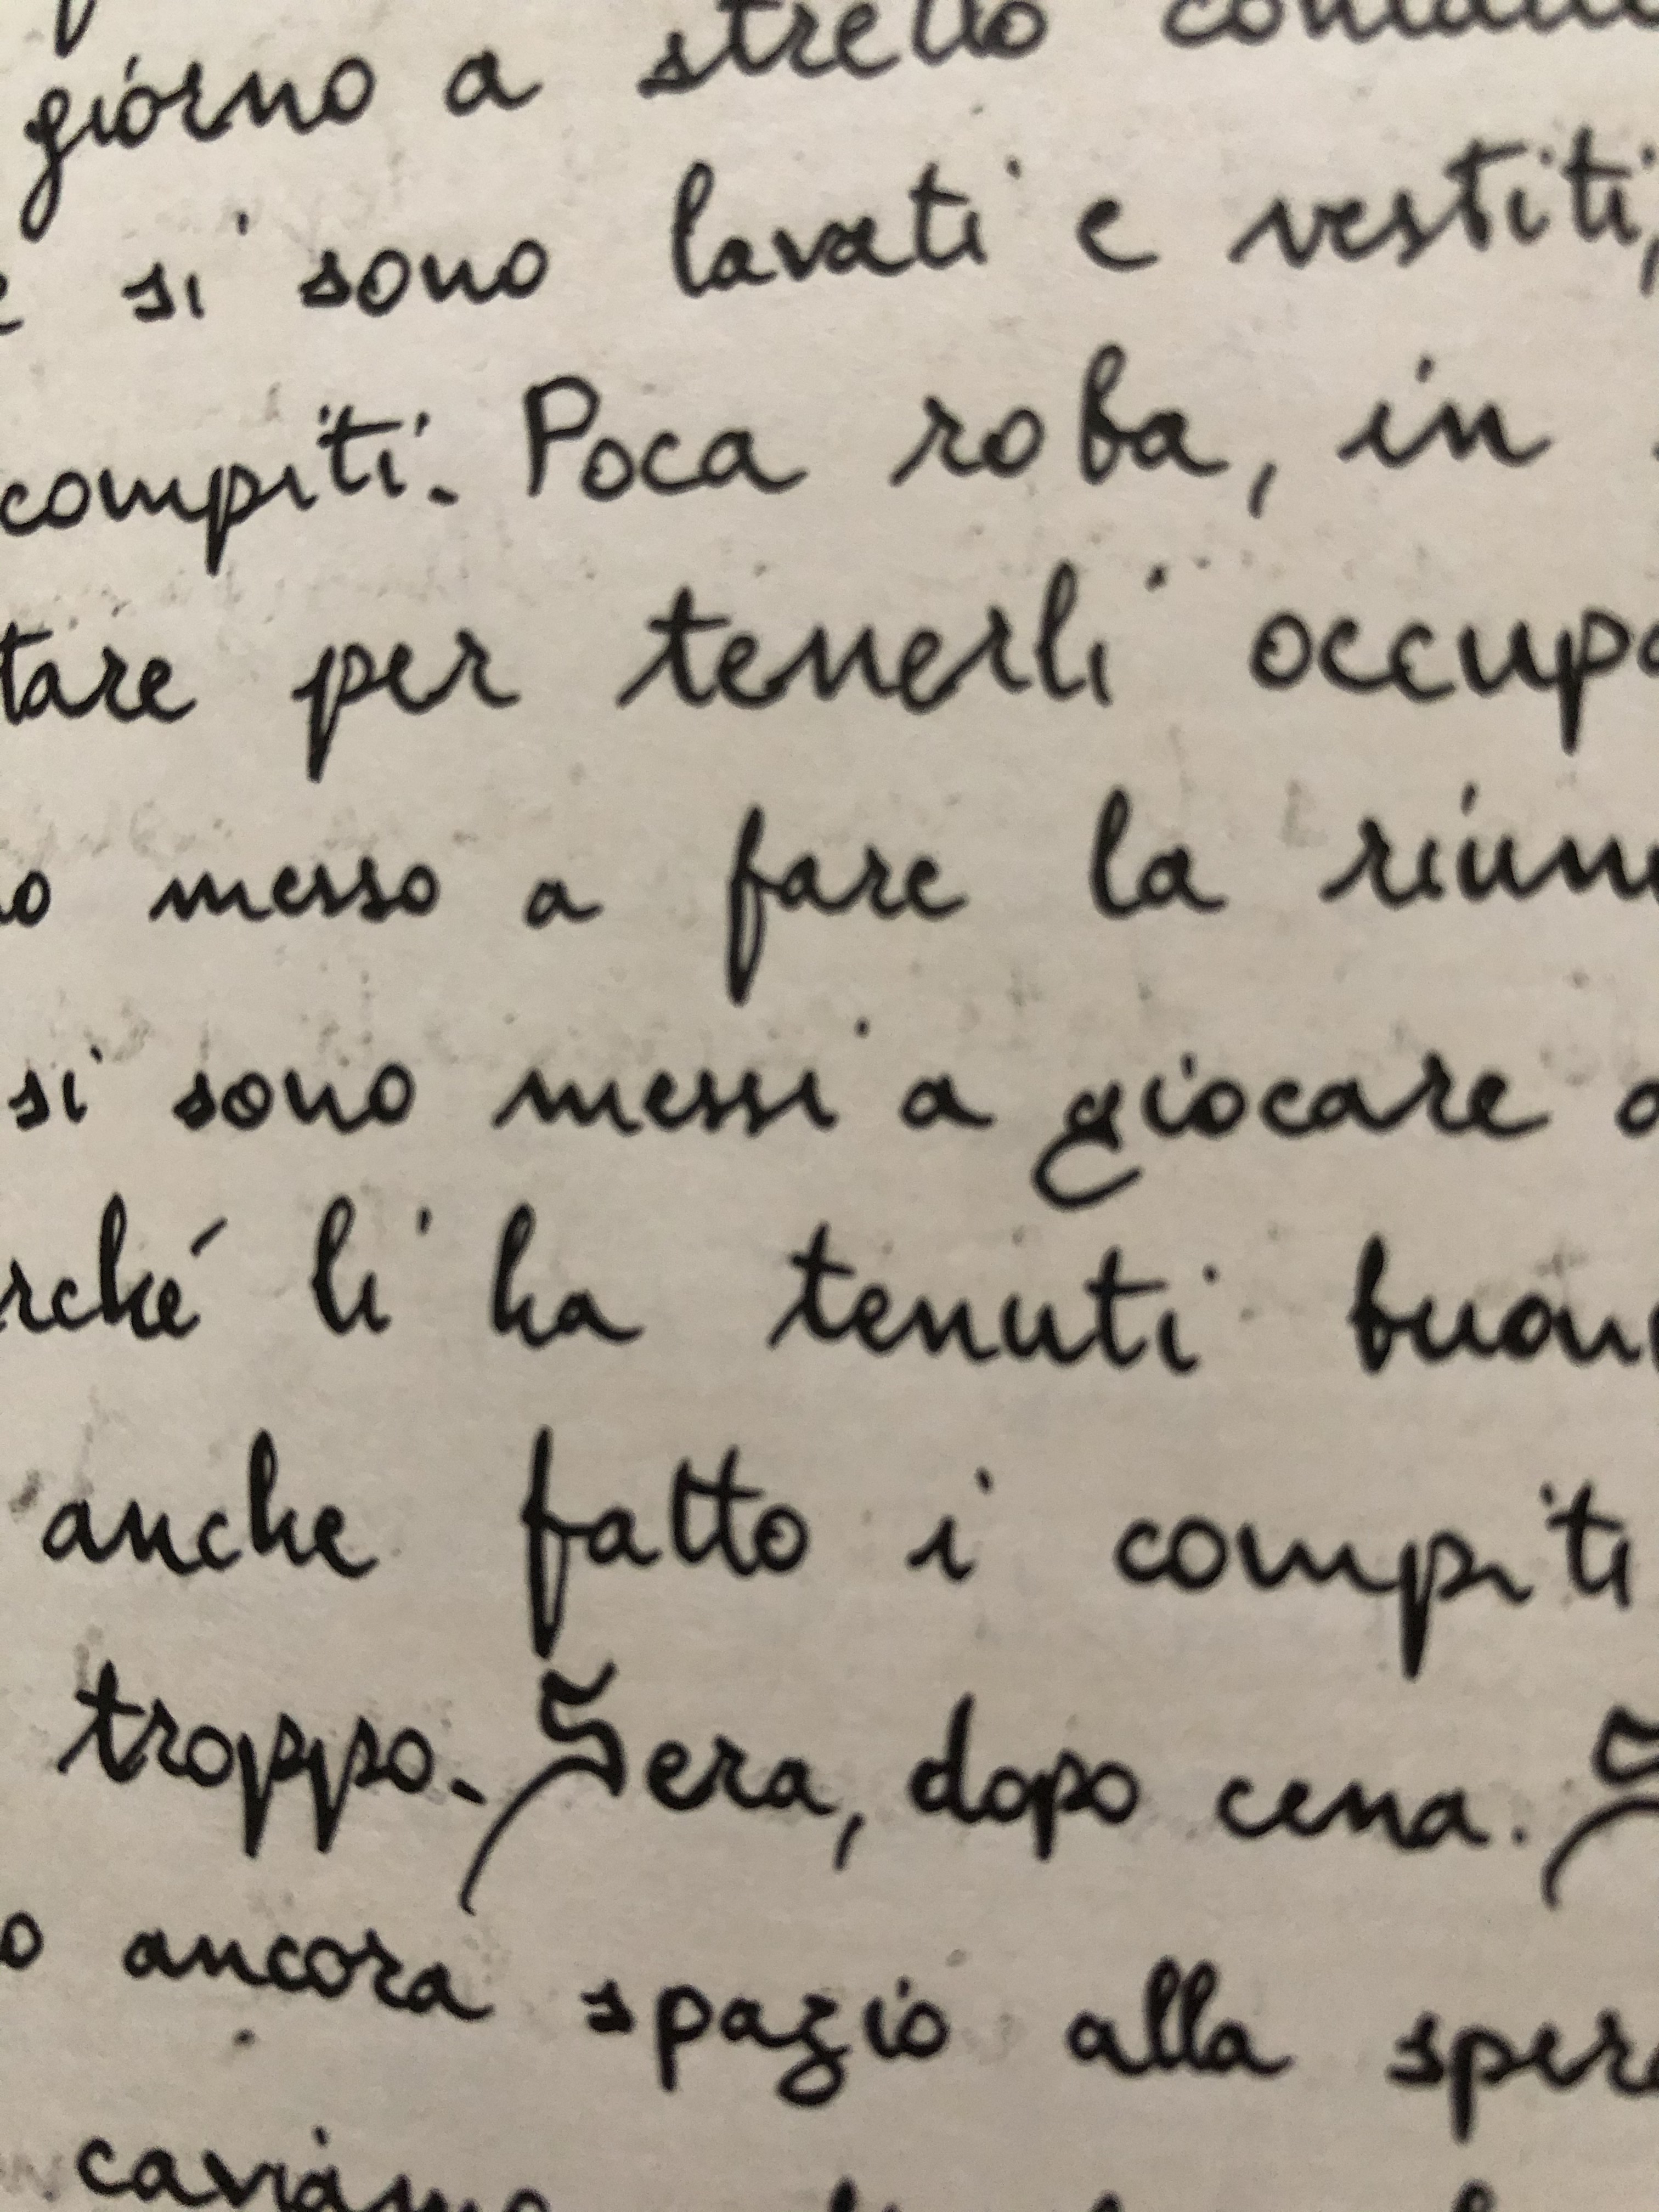 giorno a stretto
si sono lavati e vestiti,
compiti. Poca roba, in
tare per tenerli occupa
o messo a fare la riuni
si sono messi a giocare a
rché li ha tenuti buoni
anche fatto i compiti
troppo. Sera, dopo cena. S
o ancora spazio alla spera
caviamo